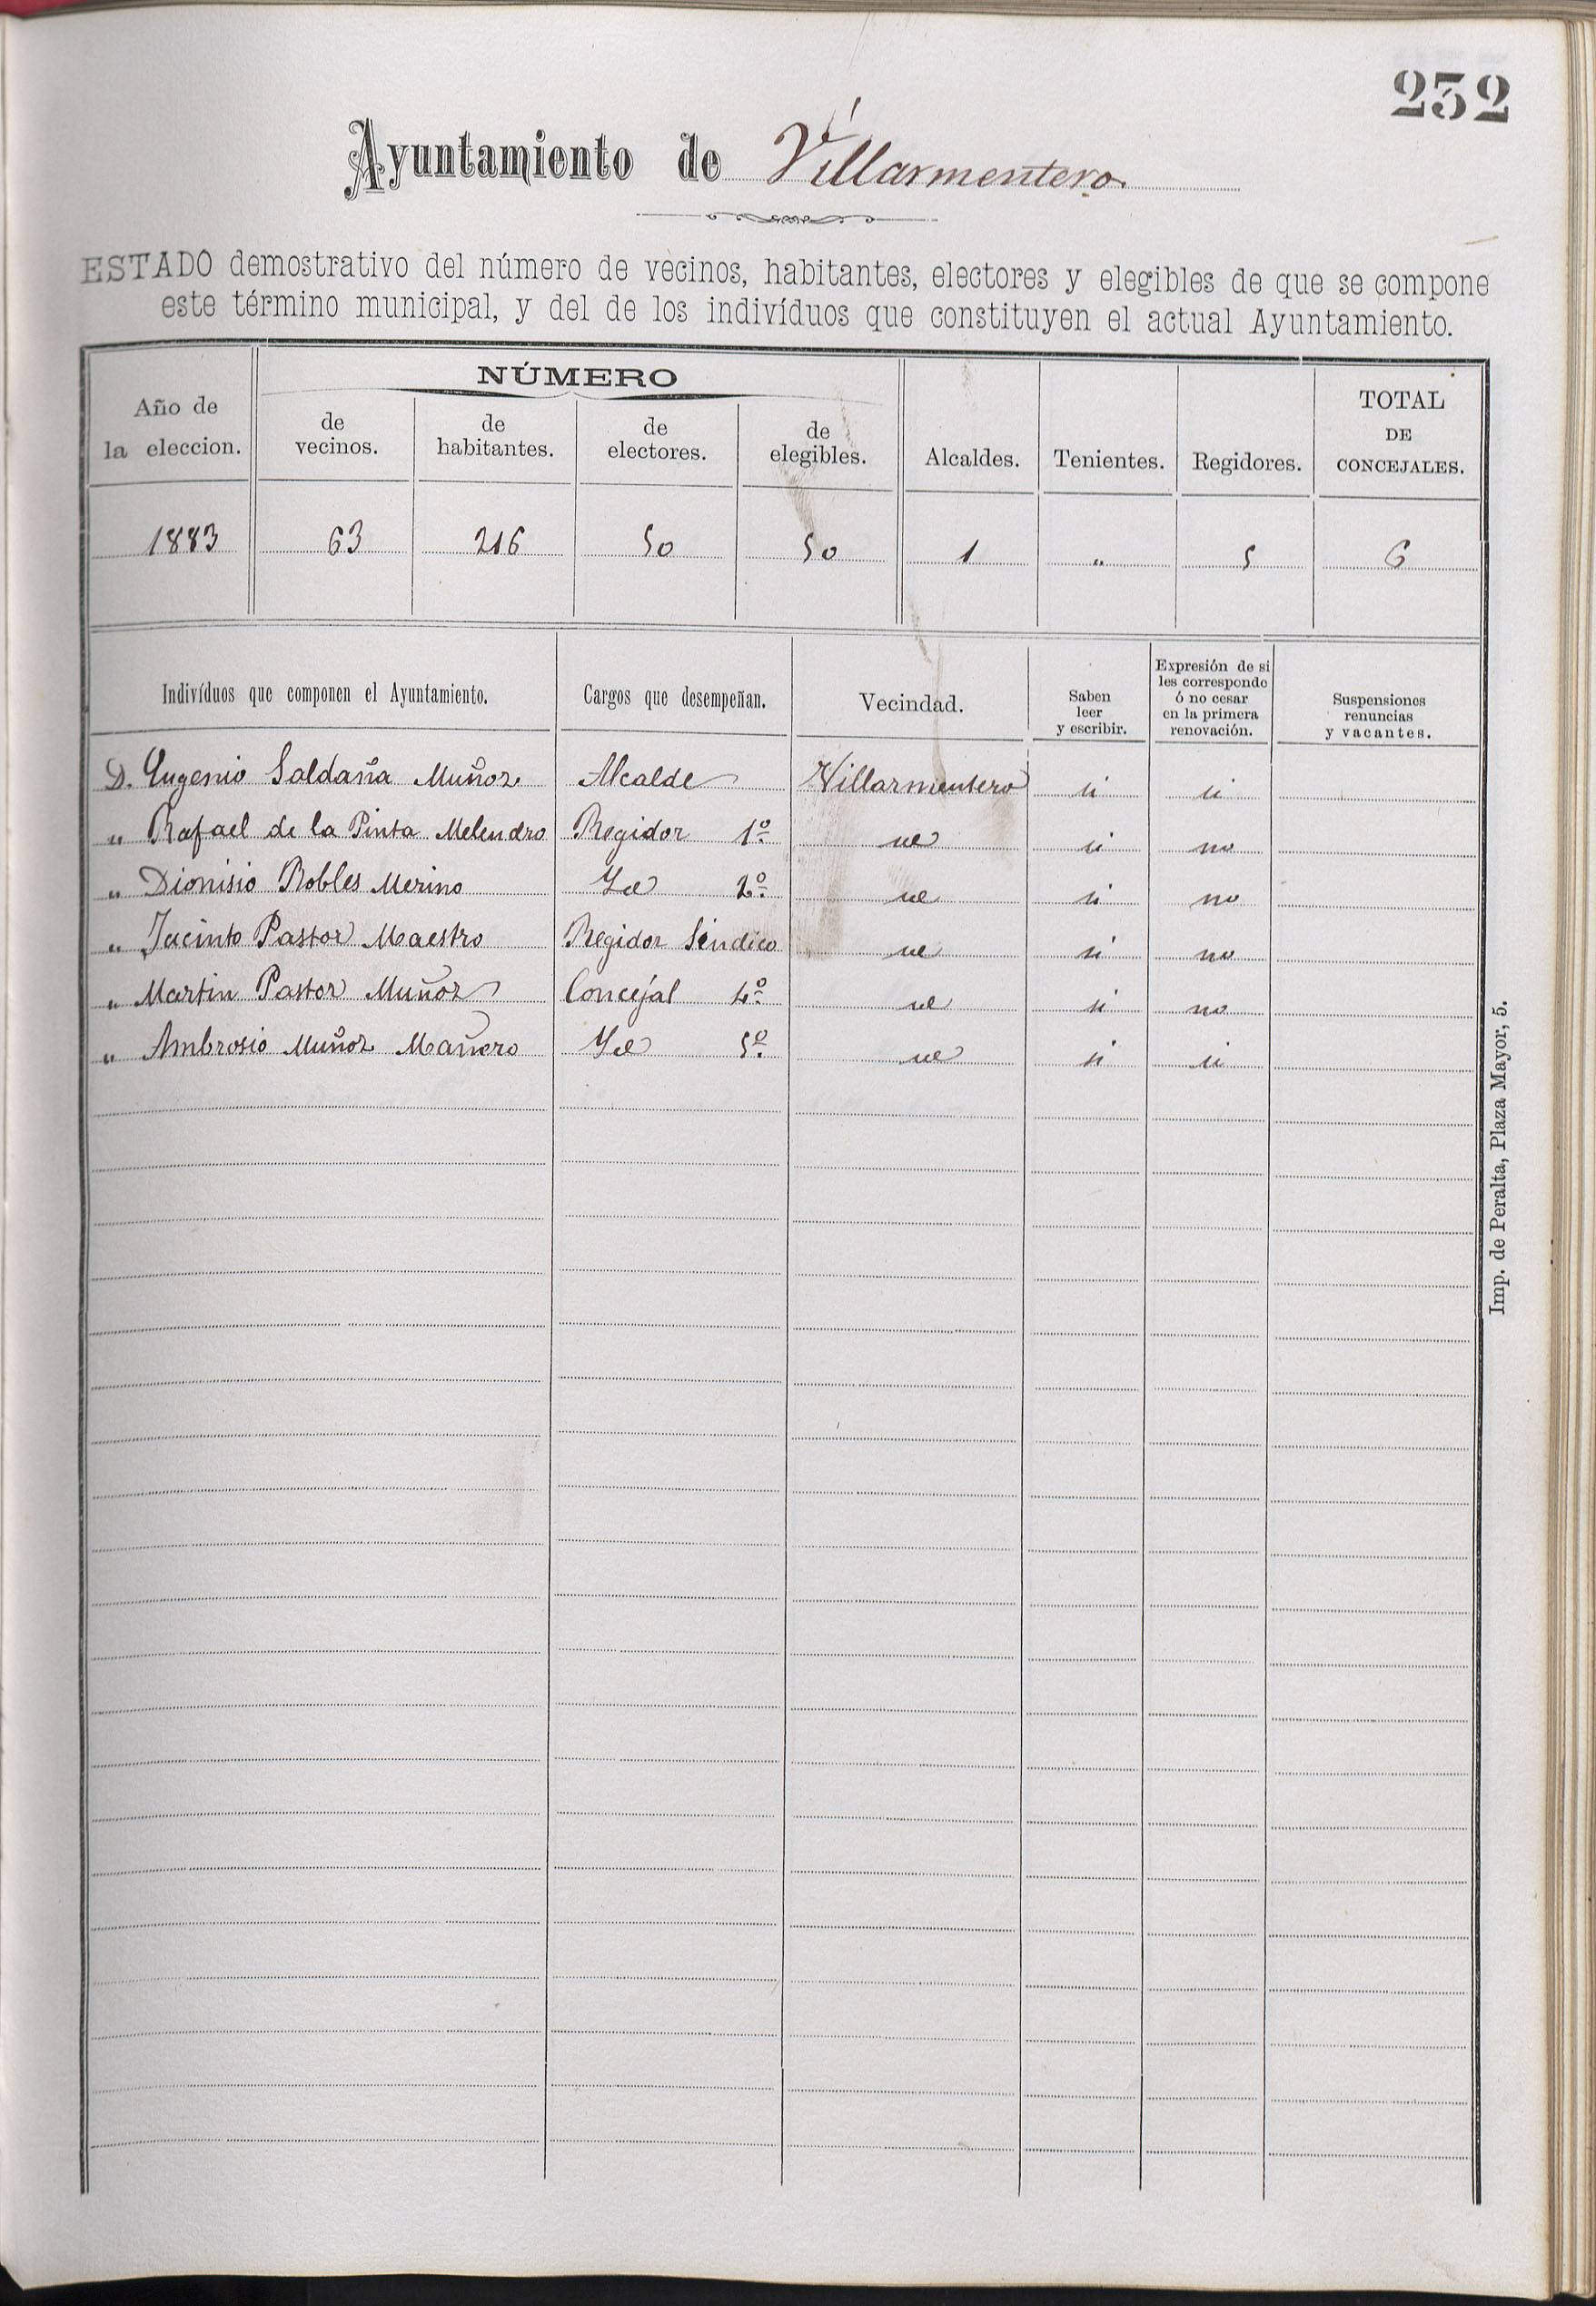 232
Ayuntamiento de Villarmentero.
ESTADO demostrativo del número de vecinos, habitantes, electores y elegibles de que se compone
este término municipal, y del de los indivíduos que constituyen el actual Ayuntamiento.
Año de la eleccion. NÚMERO de vecinos. de habitantes. de electores. de elegibles. Alcaldes. Tenientes. Regidores. TOTAL DE CONCEJALES.
1883 63 216 50 50 1 " 5 6
Indivíduos que componen el Ayuntamiento. Cargos que desempeñan. Vecindad. Saben leer y escribir. Expresión de si les corresponde ó no cesar en la primera renovación. Suspensiones renuncias y vacantes.
D. Eugenio Saldaña Muñoz Alcalde Villarmentero si si
" Rafael de la Pinta Melendro Regidor 1º id si no
" Dionisio Robles Merino Id 2º id si no
" Jacinto Pastor Maestro Regidor Síndico id si no
" Martin Pastor Muñoz Concejal 4º id si no
" Ambrosio Muñoz Mañero Id 5º id si si
Imp. de Peralta, Plaza Mayor, 5.